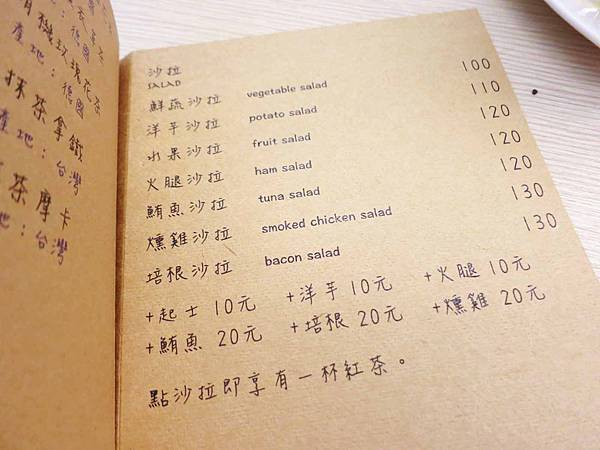 有機玫瑰花茶
產地：德國
抹茶拿鐵
產地：台灣
茶摩卡
地：台灣
沙拉
SALAD
鮮蔬沙拉 vegetable salad 100
洋芋沙拉 potato salad 110
水果沙拉 fruit salad 120
火腿沙拉 ham salad 120
鮪魚沙拉 tuna salad 120
燻雞沙拉 smoked chicken salad 130
培根沙拉 bacon salad 130
+起士 10元 +洋芋 10元 +火腿 10元
+鮪魚 20元 +培根 20元 +燻雞 20元
點沙拉即享有一杯紅茶。